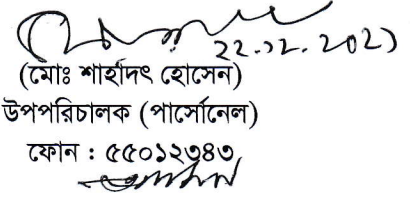 22.12.202
(মোঃ শাহাদৎ হোসেন)
উপপরিচালক (পার্সোনেল)
ফোন : ৫৫০১২৩৪৩